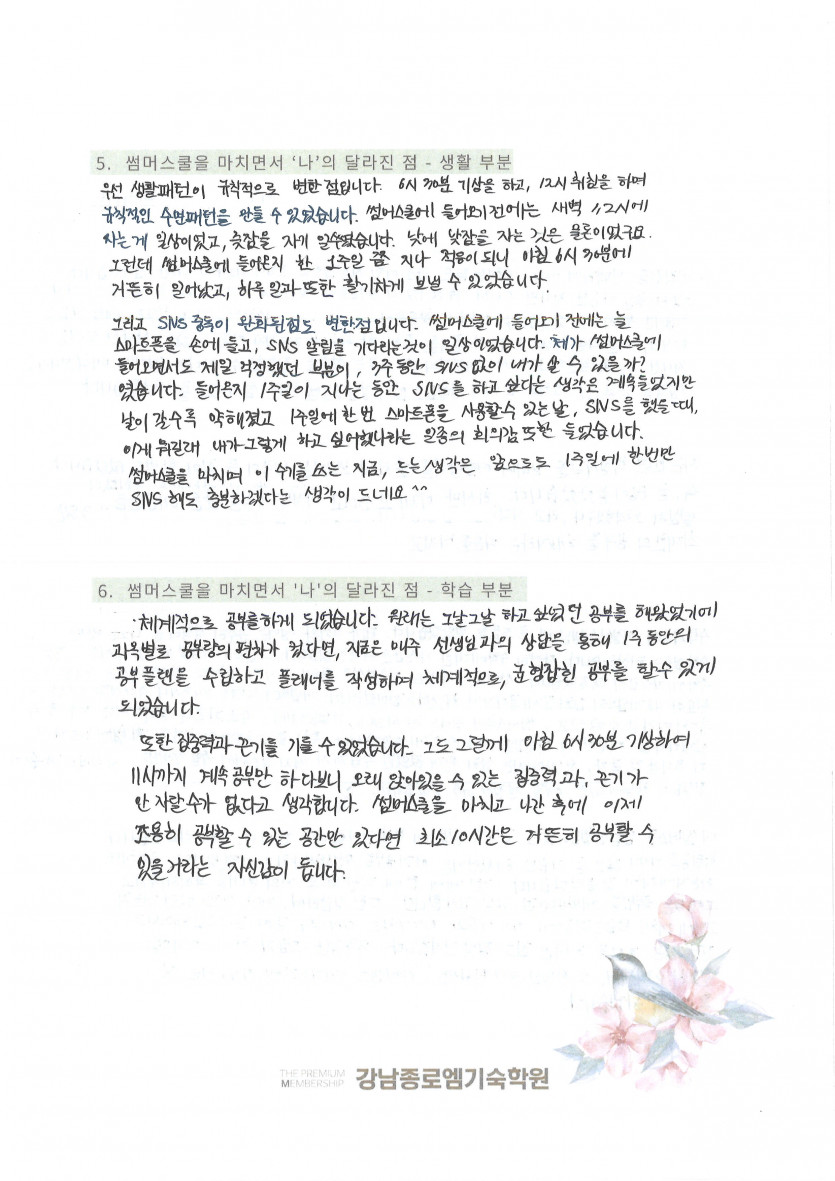 5. 썸머스쿨을 마치면서 '나'의 달라진 점 - 생활 부분
우선 생활패턴이 규칙적으로 변한점입니다. 6시 30분 기상을 하고, 12시 취침을 하며
규칙적인 수면패턴을 만들 수 있었습니다. 썸머스쿨에 들어오기 전에는 새벽 1,2시에
자는게 일상이었고, 늦잠을 자기 일쑤였습니다. 낮에 낮잠을 자는 것은 물론이었구요.
그런데 썸머스쿨에 들어온지 한 1주일 쯤 지나 적응이 되니 아침 6시 30분에
거뜬히 일어났고, 하루 일과 또한 활기차게 보낼 수 있었습니다.
그리고 SNS 중독이 완화된점도 변한점입니다. 썸머스쿨에 들어오기 전에는 늘
스마트폰을 손에 들고, SNS 알림을 기다리는것이 일상이었습니다. 제가 썸머스쿨에
들어오면서도 제일 걱정했던 부분이, 3주동안 SNS없이 내가 살 수 있을까?
였습니다. 들어온지 1주일이 지나는 동안 SNS를 하고 싶다는 생각은 계속들었지만
날이 갈수록 약해졌고 1주일에 한번 스마트폰을 사용할수 있는날, SNS를 했을때,
이게 뭐길래 내가 그렇게 하고 싶어했나라는 일종의 회의감 또한 들었습니다.
썸머스쿨을 마치며 이 수기를 쓰는 지금, 드는 생각은 앞으로도 1주일에 한번만
SNS 해도 충분하겠다는 생각이 드네요^^
6. 썸머스쿨을 마치면서 '나'의 달라진 점 - 학습 부분
체계적으로 공부를하게 되었습니다. 원래는 그날그날 하고싶었던 공부를 해왔었기에
과목별로 공부량의 편차가 컸다면, 지금은 매주 선생님과의 상담을 통해 1주동안의
공부플랜을 수립하고 플래너를 작성하며 체계적으로, 균형잡힌 공부를 할수있게
되었습니다.
또한 집중력과 끈기를 기를 수 있었습니다. 그도 그럴게 아침 6시 30분 기상하여
11시까지 계속 공부만 하다보니 오래 앉아있을 수 있는 집중력과, 끈기가
안 자랄수가 없다고 생각합니다. 썸머스쿨을 마치고 나간 후에 이제
조용히 공부할 수 있는 공간만 있다면 최소 10시간은 거뜬히 공부할 수
있을거라는 자신감이 듭니다.
THE PREMIUM
MEMBERSHIP 강남종로엠기숙학원